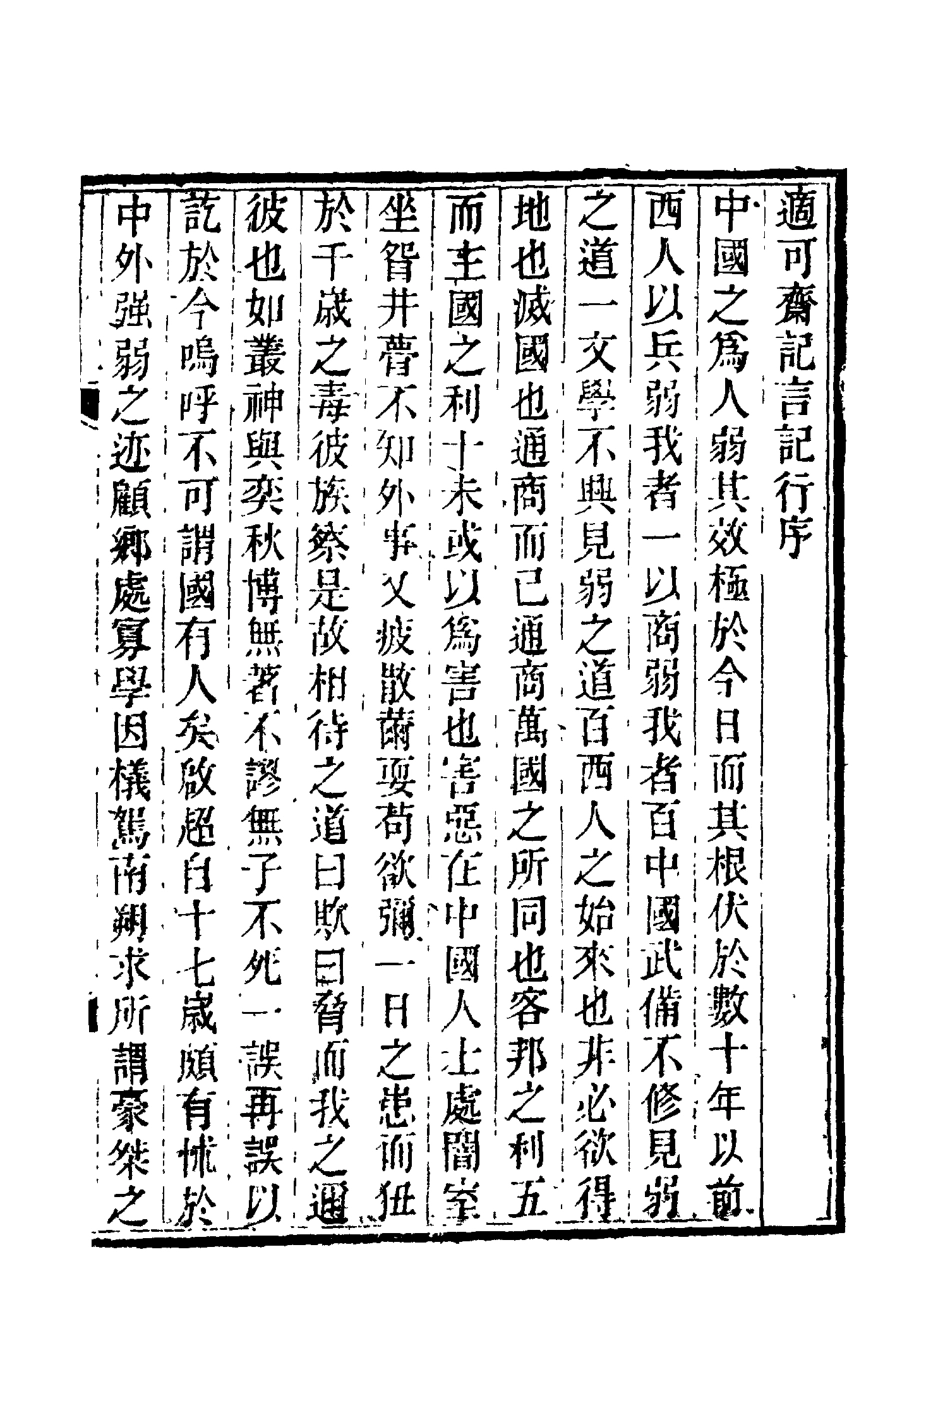 適可齋記言記行序
中國之爲人弱其效極於今日而其根伏於數十年以前
西人以兵弱我者一以商弱我者百中國武備不修見弱
之道一文學不興見弱之道百西人之始來也非必欲得
地也滅國也通商而已通商萬國之所同也客邦之利五
而主國之利十未或以爲害也害惡在中國人士處闇室
坐眢井瞢不知外事又疲散薾耎苟欲彌一日之患而狃
於千歲之毒彼族察是故相待之道曰欺曰脅而我之遇
彼也如叢神與奕秋博無著不謬無子不死一誤再誤以
訖於今嗚呼不可謂國有人矣啟超自十七歲頗有怵於
中外强弱之迹顧鄉處寡學因檥駕南朔求所謂豪桀之